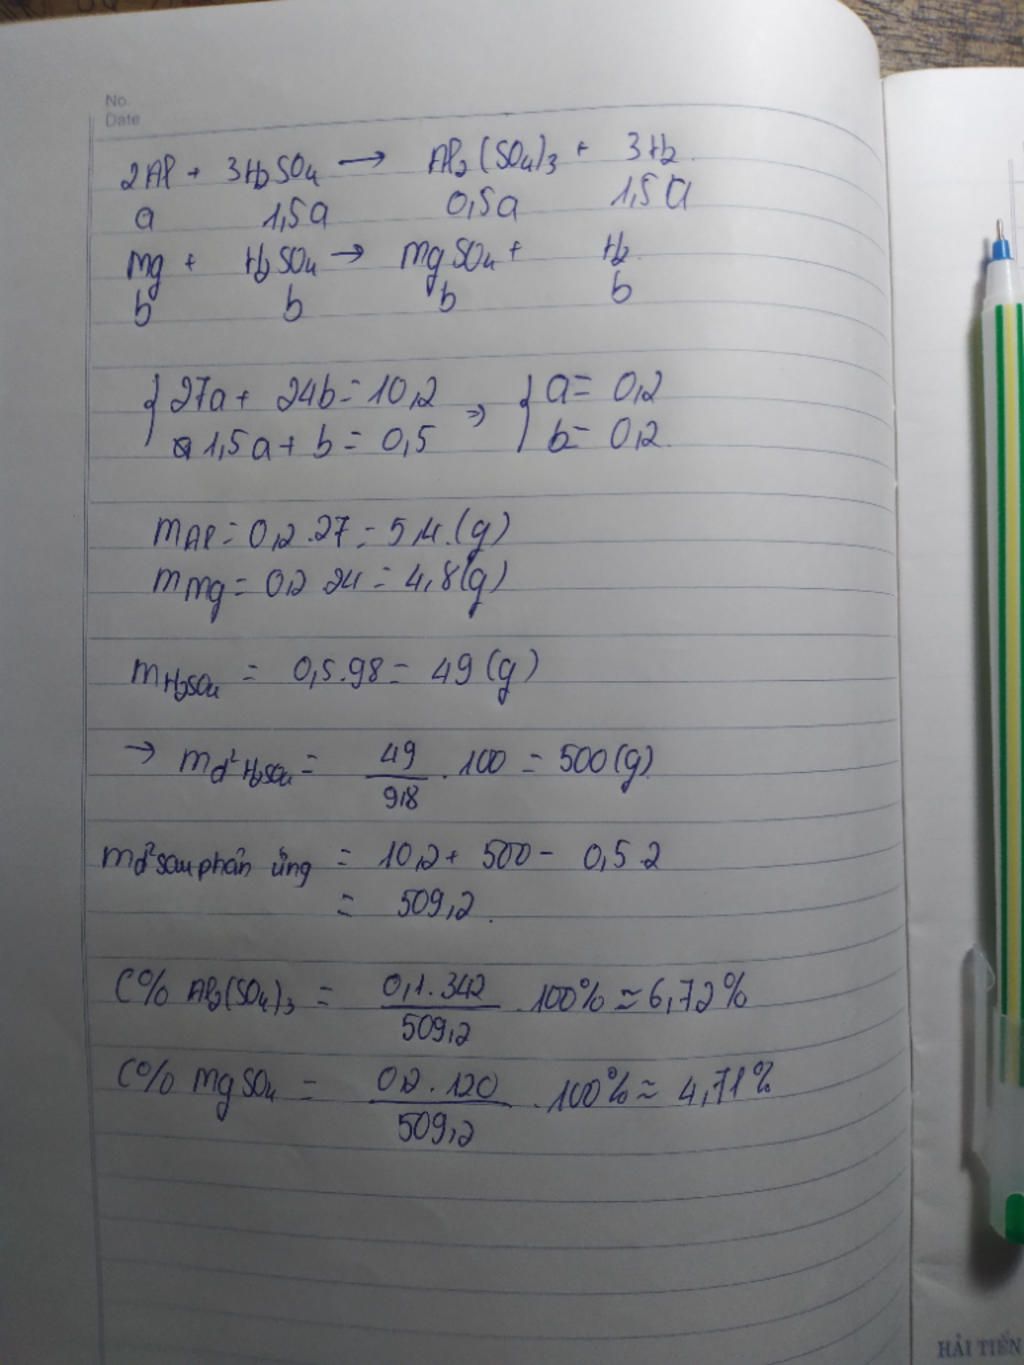 No.
Date
2Al + 3H₂SO₄ → Al₂(SO₄)₃ + 3H₂
a 1,5a 0,5a 1,5a
Mg + H₂SO₄ → MgSO₄ + H₂
b b b b
{ 27a + 24b = 10,2 ⇒ { a = 0,2
1,5a + b = 0,5 b = 0,2
mAl = 0,2.27 = 5,4 (g)
mMg = 0,2 24 = 4,8 (g)
mH₂SO₄ = 0,5.98 = 49 (g)
→ md² H₂SO₄ = 49/9,8 . 100 = 500 (g)
md² sau phản ứng = 10,2 + 500 - 0,5.2
= 509,2.
C% Al₂(SO₄)₃ = 0,1.342/509,2 . 100% ≈ 6,72%
C% MgSO₄ = 0,2.120/509,2 . 100% ≈ 4,71%
HẢI TIẾN